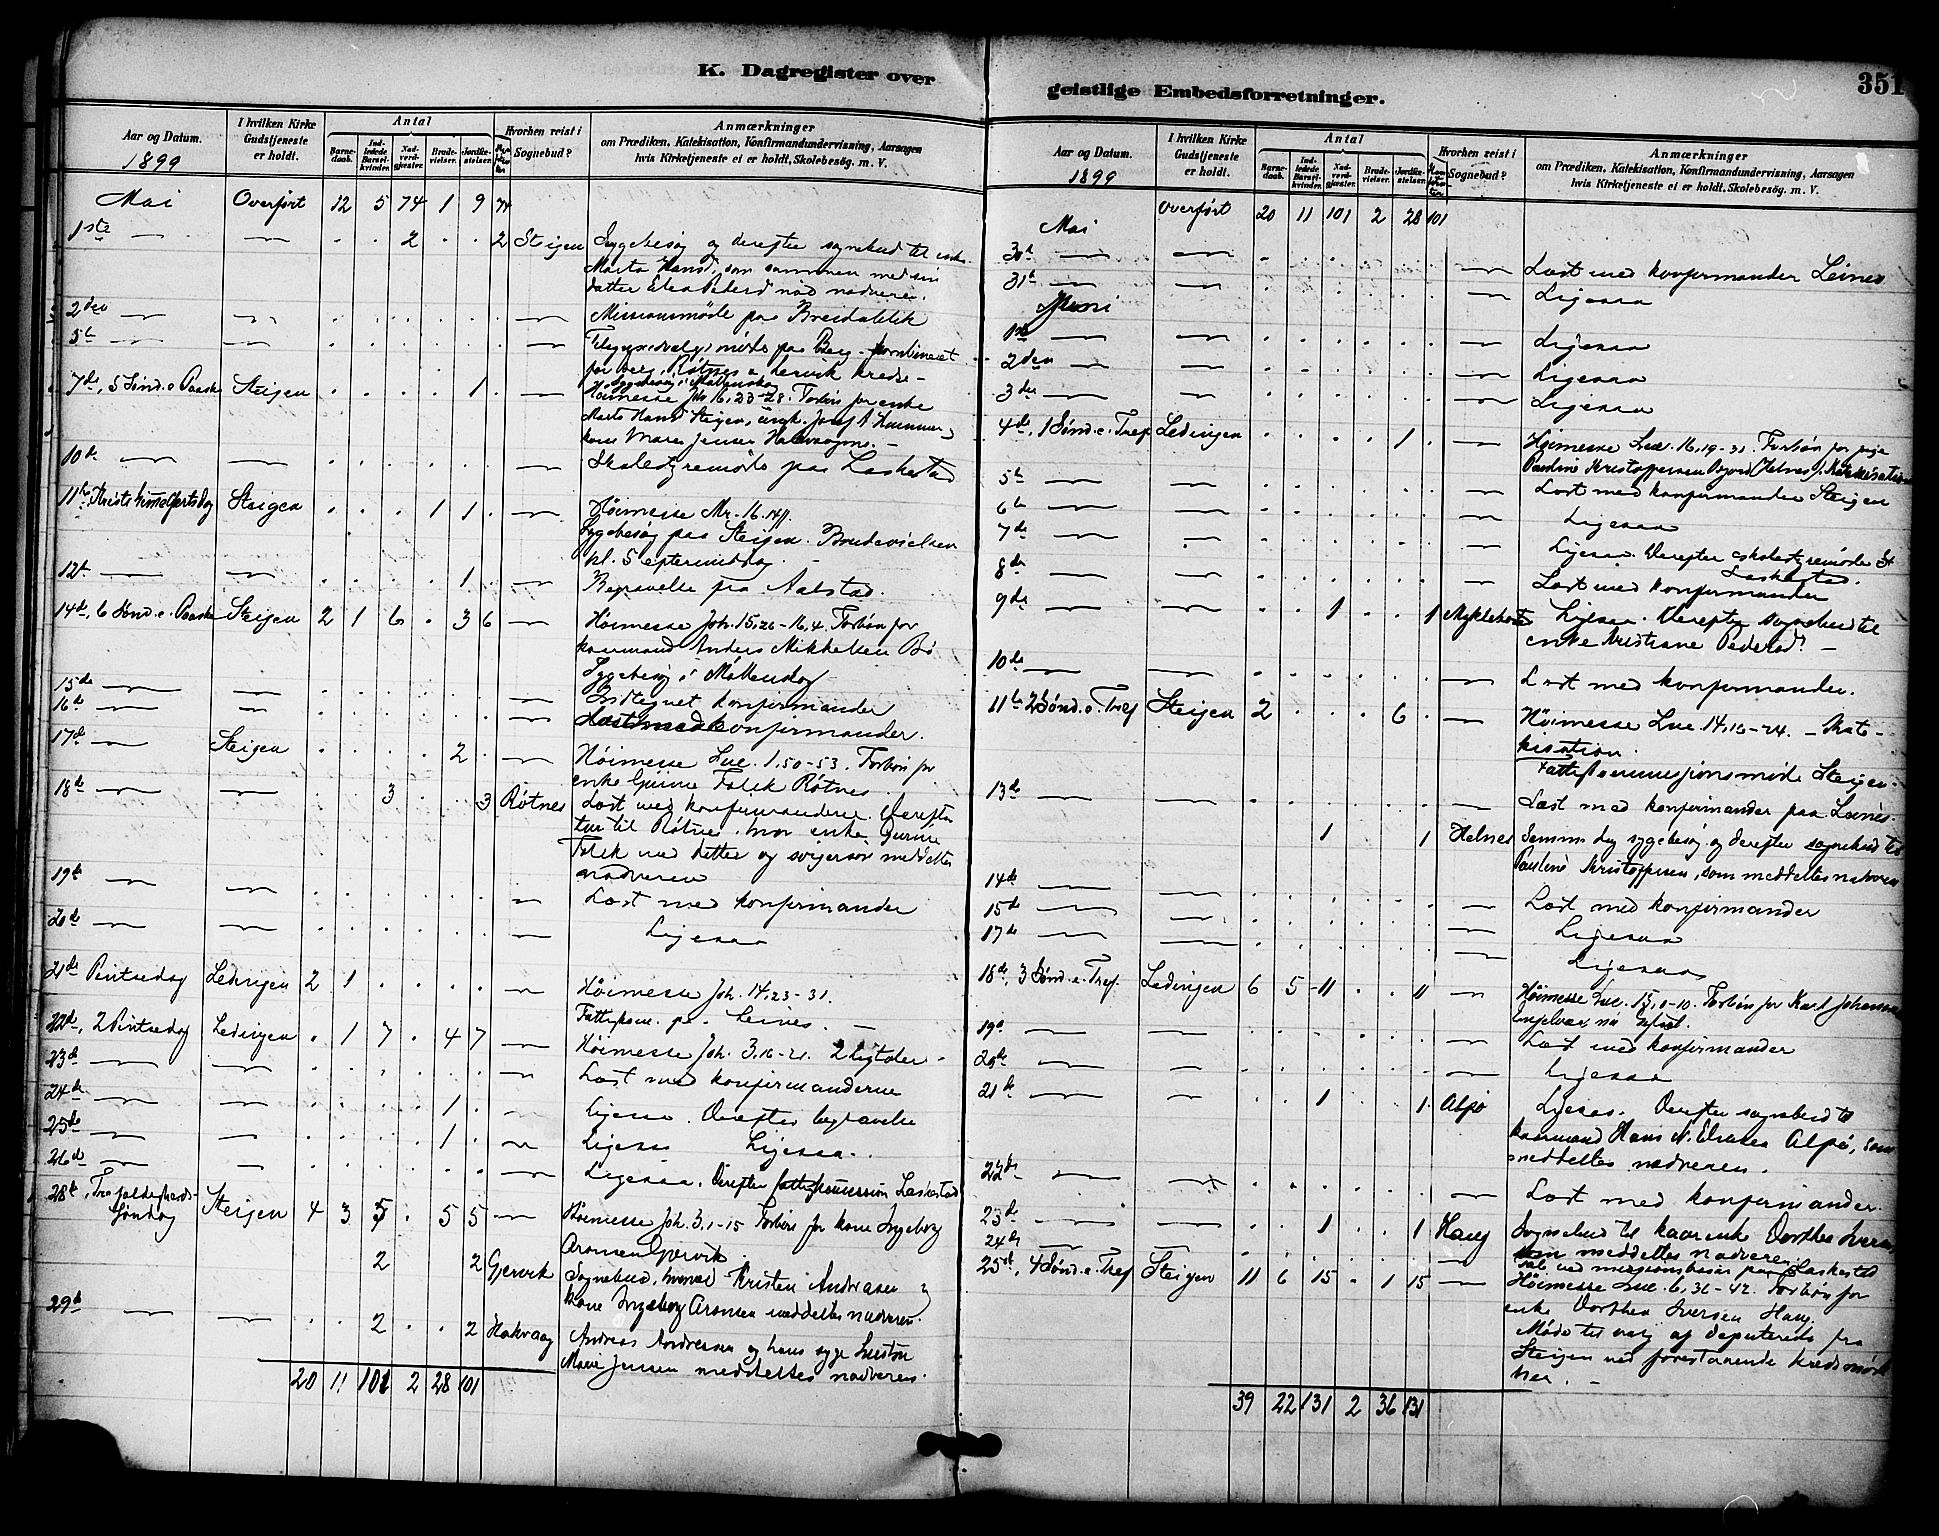 K. Dagregister over
Aar og Datum.
1899
I hvilken Kirke Gudstjeneste er holdt.
Antal
Barnedaab.
Indledede Barselkvinder.
Nadverdgjester.
Brudevielser.
Jordfæstelser.
Hvorhen reist i Sognebud?
Anmærkninger
om Prædiken, Katekisation, Konfirmandundervisning, Aarsagen
hvis Kirketjeneste ei er holdt, Skolebesøg. m. V.
Mai Overført 12 5 74 1 9 74
1ste — — . . 2 . . 2 Steigen Sygebesøg og derefter sognebud til enke
Marta Hansd., som sammen med sin
datter Elen Pedersd nød nadveren.
2den — — . . . . . . — Missionsmøde paa Breidablik
5te — — . . . . . . — paa Berg
for Berg, Røtnes & Lervik kreds –
7de, 5 Sønd. e. Paaske Steigen . . . . 1 . — Høimesse Joh 16, 23-28. Forbøn for enke
Marta Hansd Steigen,
kone Maren Jensen
10de — — . . . . . . — Skolestyremøde paa Laskestad
11te Kristi himmelfartsdag Steigen . . . 1 1 . — Høimesse Mr. 16.14ff.
Sygebesøg paa Steigen. Brudevielsen
kl. 5 eftermiddag.
12te — — . . . . 1 . — Begravelse paa Aalstad.
14de, 6 Sønd. e. Paaske Steigen 2 1 6 . 3 6 — Høimesse Joh. 15,26-16,4. Forbøn for
kaarmand Anders Mikkelsen Bø
Sygebesøg i
15de — — . . . . . . — Indtegnet konfirmander
16de — — . . . . . . — Læst med konfirmander.
17de — Steigen . . . . 2 . — Høimesse Luc. 1.50-53. Forbøn for
enke Gurine Falck Røtnes
18de — — . . 3 . . 3 Røtnes Læst med konfirmanderne. Derefter
tur til Røtnes, hvor enke Gurine
Falck med datter og svigersøn meddeltes
nadveren
19de — — . . . . . . — Læst med konfirmander
20de — — . . . . . . — Ligesaa
21de Pintsedag Ledingen 2 1 . . . . — Høimesse Joh. 14,23-31.
Fattigkom. paa Leines. —
22de, 2 Pintsedag Ledingen . 1 7 . 4 7 — Høimesse Joh. 3.16-21. 2 ligtaler –
23de — — . . . . . . — Læst med konfirmanderne
24de — — . . . . 1 . — Ligesaa. Derefter begravelse
25de — — . . . . 1 . — Ligesaa Ligesaa.
26de — — . . . . . . — Ligesaa. Derefter fattigkommission Laskestad
28de, Trefoldigheds-
Søndag Steigen 4 3 5 . 5 5 — Høimesse Joh. 3,1-15 Forbøn for kone Ingeborg
Aronsen Gjervik.
2 2 Gjervik Sognebud, hvorved Kristen Andreasen &
kone Ingeborg Aronsen meddeltes nadveren.
29de — — . . 2 . . 2 Hakvaag Andreas Andreassen og hans syge hustru
Marie Jensen meddeltes nadveren.
20 11 101 2 28 101
geistlige Embedsforretninger.
351
Aar og Datum.
1899
I hvilken Kirke Gudstjeneste er holdt.
Antal
Barnedaab.
Indledede Barselkvinder.
Nadverdgjester.
Brudevielser.
Jordfæstelser.
Hvorhen reist i Sognebud?
Anmærkninger
om Prædiken, Katekisation, Konfirmandundervisning, Aarsagen
hvis Kirketjeneste ei er holdt, Skolebesøg. m. V.
Overført 20 11 101 2 28 101
Mai
30te — — . . . . . . — Læst med konfirmander Leines
31te — — . . . . . . — Ligesaa
Juni
1ste — — . . . . . . — Ligesaa
2den — — . . . . . . — Ligesaa
3die — — . . . . . . — Ligesaa
4de, 1 Sønd. e. Tref Ledingen . . . . 1 . — Høimesse Luc. 16,19-31. Forbøn for pige
Pauline Kristoffersen Helnes. Katekisation
5te — — . . . . . . — Læst med konfirmander Steigen
6te — — . . . . . . — Ligesaa
7de — — . . . . . . — Ligesaa. Derefter skolestyremøde
Laskestad.
8de — — . . . . . . — Læst med konfirmander
9de — — . . 1 . . 1 Myklebost Ligesaa. Derefter sognebud til
enke Kristiane Pedersd. —
10de — — . . . . . . — Læst med konfirmander.
11te 2 Sønd. e. Tref Steigen 2 . . . 6 . — Høimesse Luc. 14,16-24. – Kate-
kisation.
Fattigkommissionsmøde Steigen.
13de — — . . . . . . — Læst med konfirmander paa Leines.
1 1 Helnes Samme dag sygebesøg og derefter sognebud til
Pauline Kristoffersen, som meddeltes nadveren
14de — — . . . . . . — Læst med konfirmander
15de — — . . . . . . — Ligesaa
17de — — . . . . . . — Ligesaa
18de, 3 Sønd. e. Tref. Ledingen 6 5 11 . . 11 — Høimesse Luc. 15,1-10. Forbøn for Karl Johansen
Engelvær
19de — — . . . . . . — Læst med konfirmander
20de — — . . . . . . — Ligesaa
21de — — . . 1 . . 1 Alpø Ligesaa. Derefter sognebud til
kaarmand Hans N. Alpø, som
meddeltes nadveren.
22de — — . . . . . . — Læst med konfirmander.
23de — — . . 1 . . 1 Haug Sognebud til kaarenke Dorthea Iversen,
som meddeltes nadveren
24de — — . . . . . . — missionsbasar paa Laskestad
25de, 4 Sønd. e. Tref Steigen 11 6 15 . 1 15 — Høimesse Luc. 6,36-42. Forbøn for
enke Dorthea Iversen Haug.
Møde til valg af deputerede fra
Steigen ved forestaaende kredsmøde
her. –
39 22 131 2 36 131